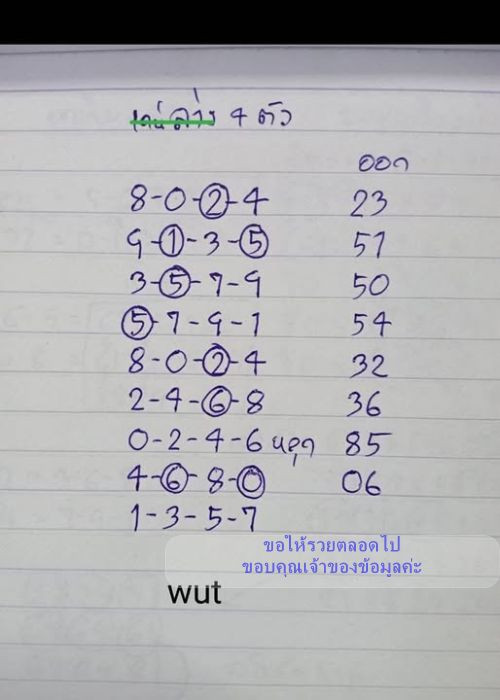 เด่นล่าง 4 ตัว
ออก
8-0-2-4 23
9-1-3-5 51
3-5-7-9 50
5-7-9-1 54
8-0-2-4 32
2-4-6-8 36
0-2-4-6 หลุด 85
4-6-8-0 06
1-3-5-7
ขอให้รวยตลอดไป
ขอบคุณเจ้าของข้อมูลค่ะ
wut